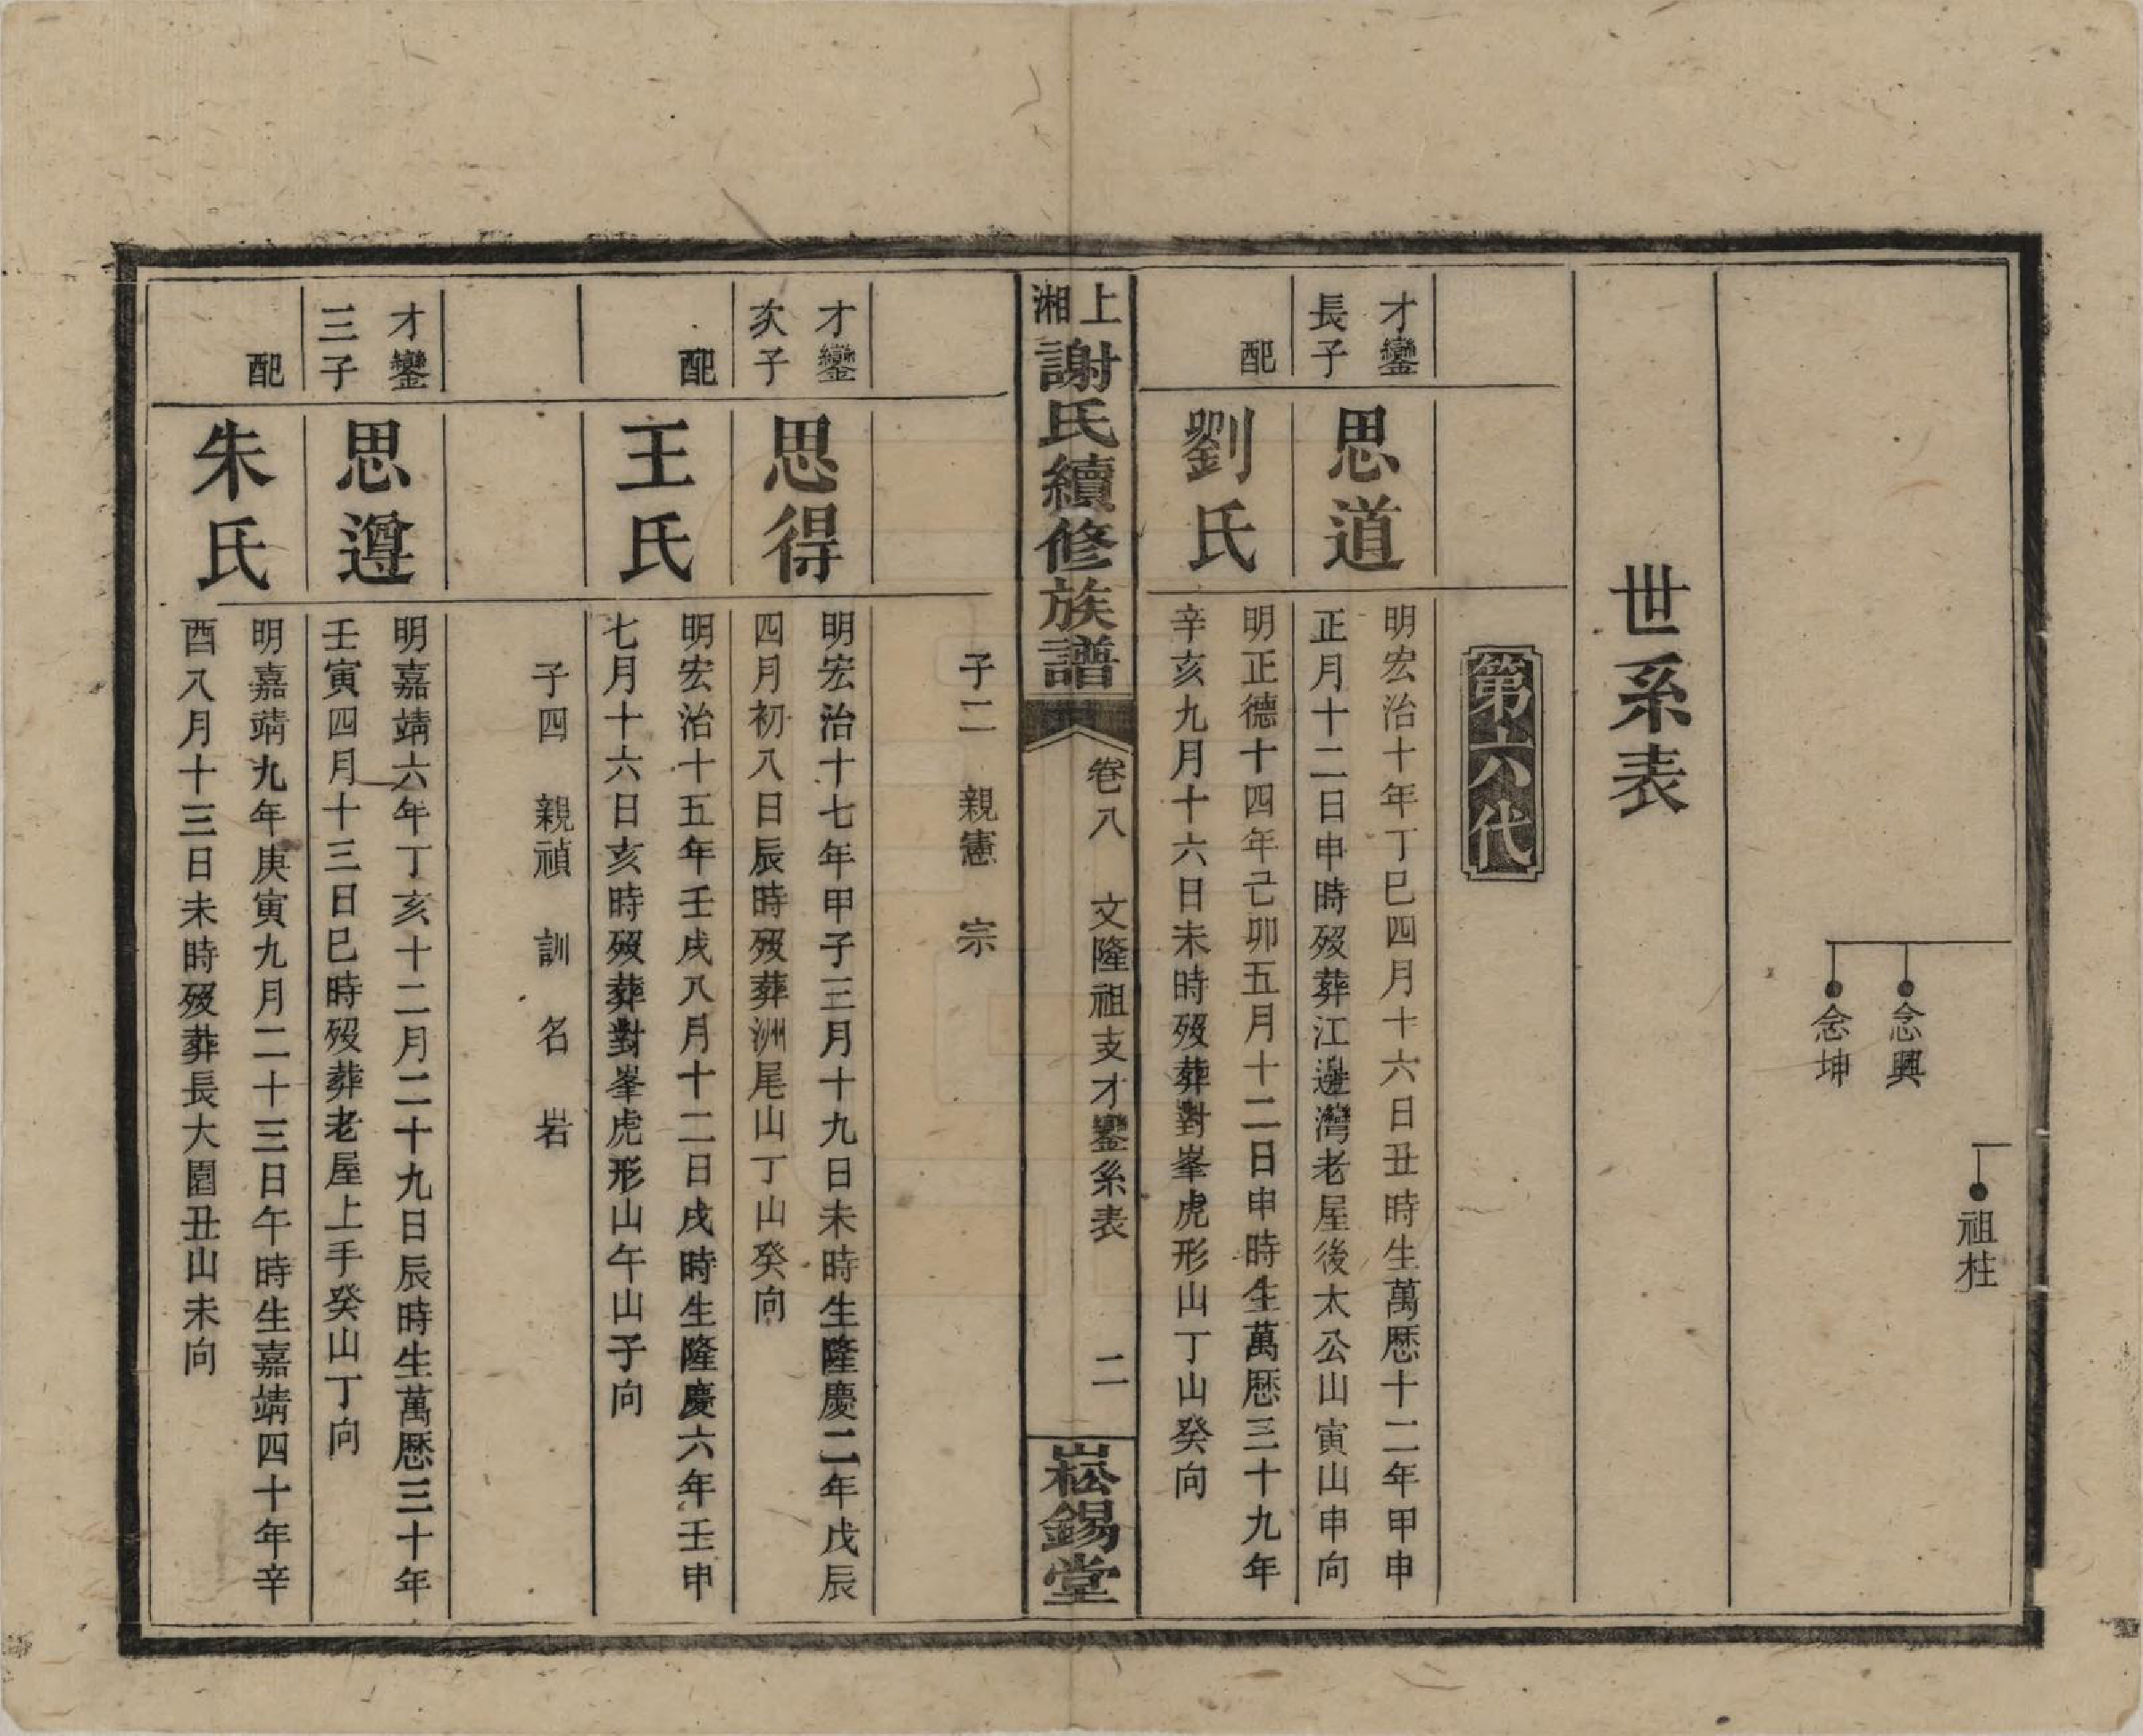 祖柱
念興
念坤
世系表
第六代
才鑾
長子
思道
明宏治十年丁巳四月十六日丑時生萬厯十二年甲申
正月十二日申時歿葬江邊灣老屋後太公山寅山申向
配
劉氏
明正德十四年己卯五月十二日申時生萬厯三十九年
辛亥九月十六日未時歿葬對峯虎形山丁山癸向
上湘
謝氏續修族譜
卷八 文隆祖支才鑾系表 二
崧錫堂
子二 親憲 宗
才鑾
次子
思得
明宏治十七年甲子三月十九日未時生隆慶二年戊辰
四月初八日辰時歿葬洲尾山丁山癸向
配
王氏
明宏治十五年壬戌八月十二日戌時生隆慶六年壬申
七月十六日亥時歿葬對峯虎形山午山子向
子四 親禎 訓 名 岩
才鑾
三子
思遵
明嘉靖六年丁亥十二月二十九日辰時生萬厯三十年
壬寅四月十三日巳時歿葬老屋上手癸山丁向
配
朱氏
明嘉靖九年庚寅九月二十三日午時生嘉靖四十年辛
酉八月十三日未時歿葬長大園丑山未向